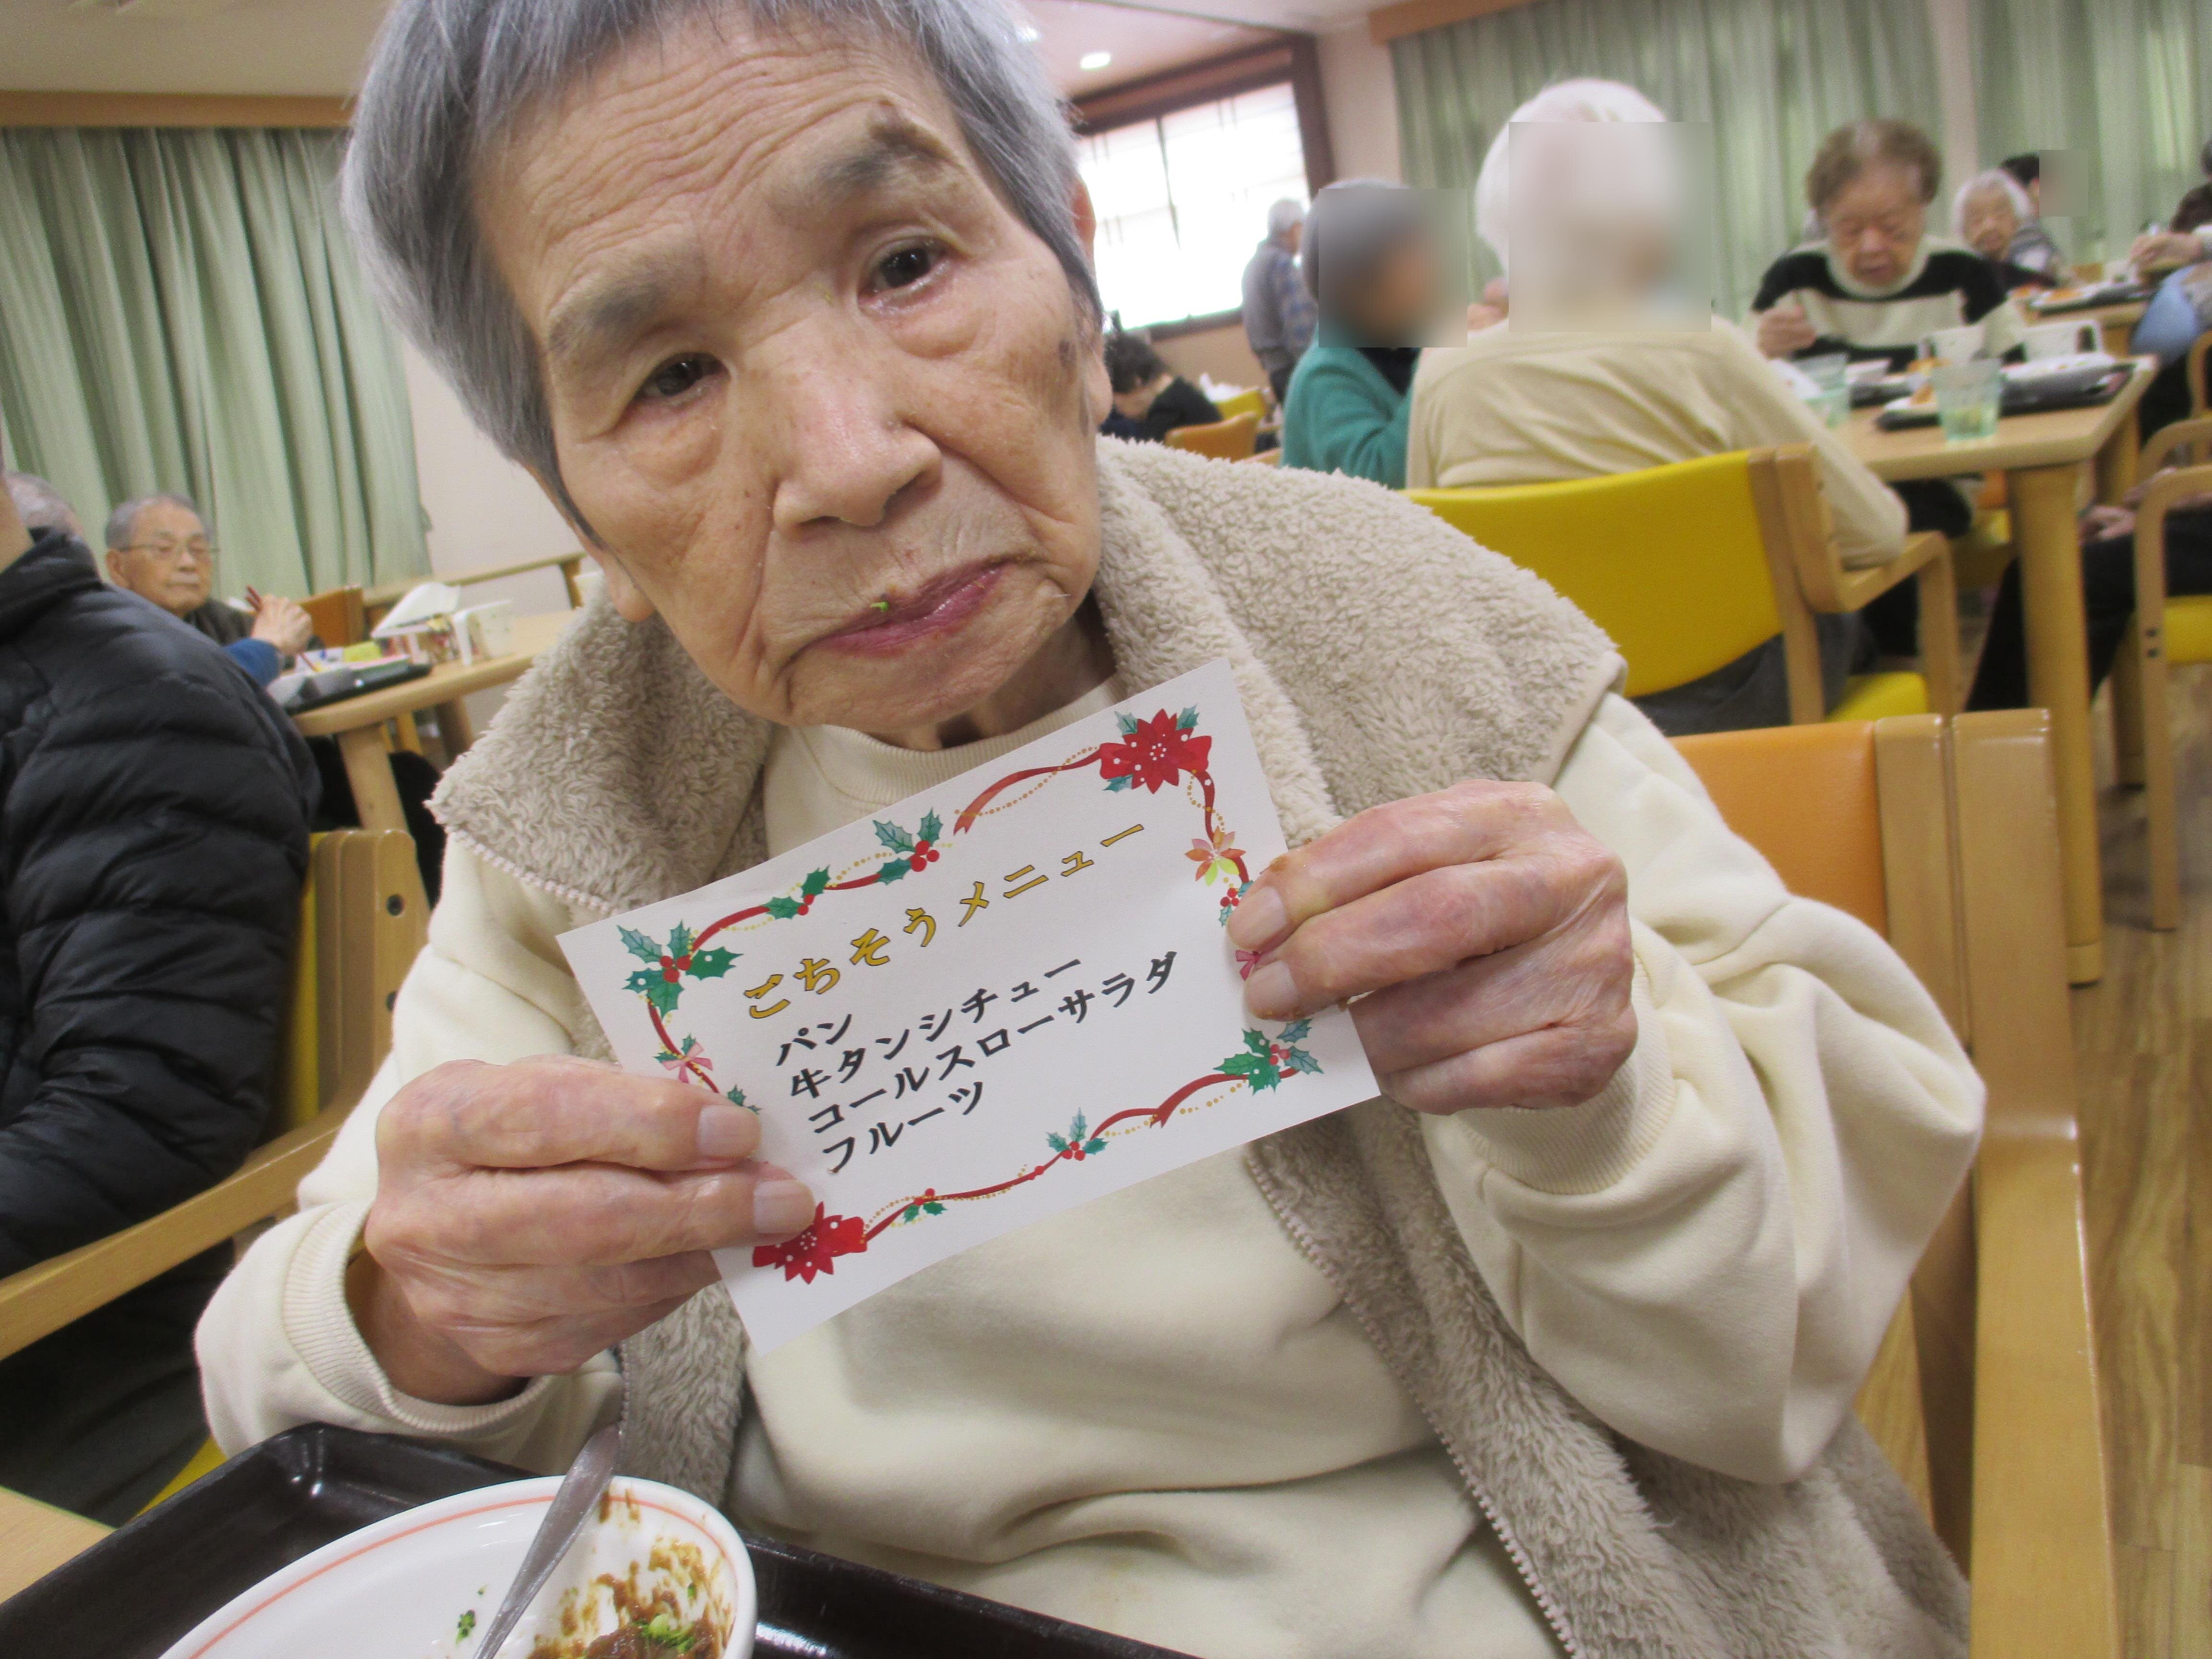 ごちそうメニュー
パン
牛タンシチュー
コールスローサラダ
フルーツ